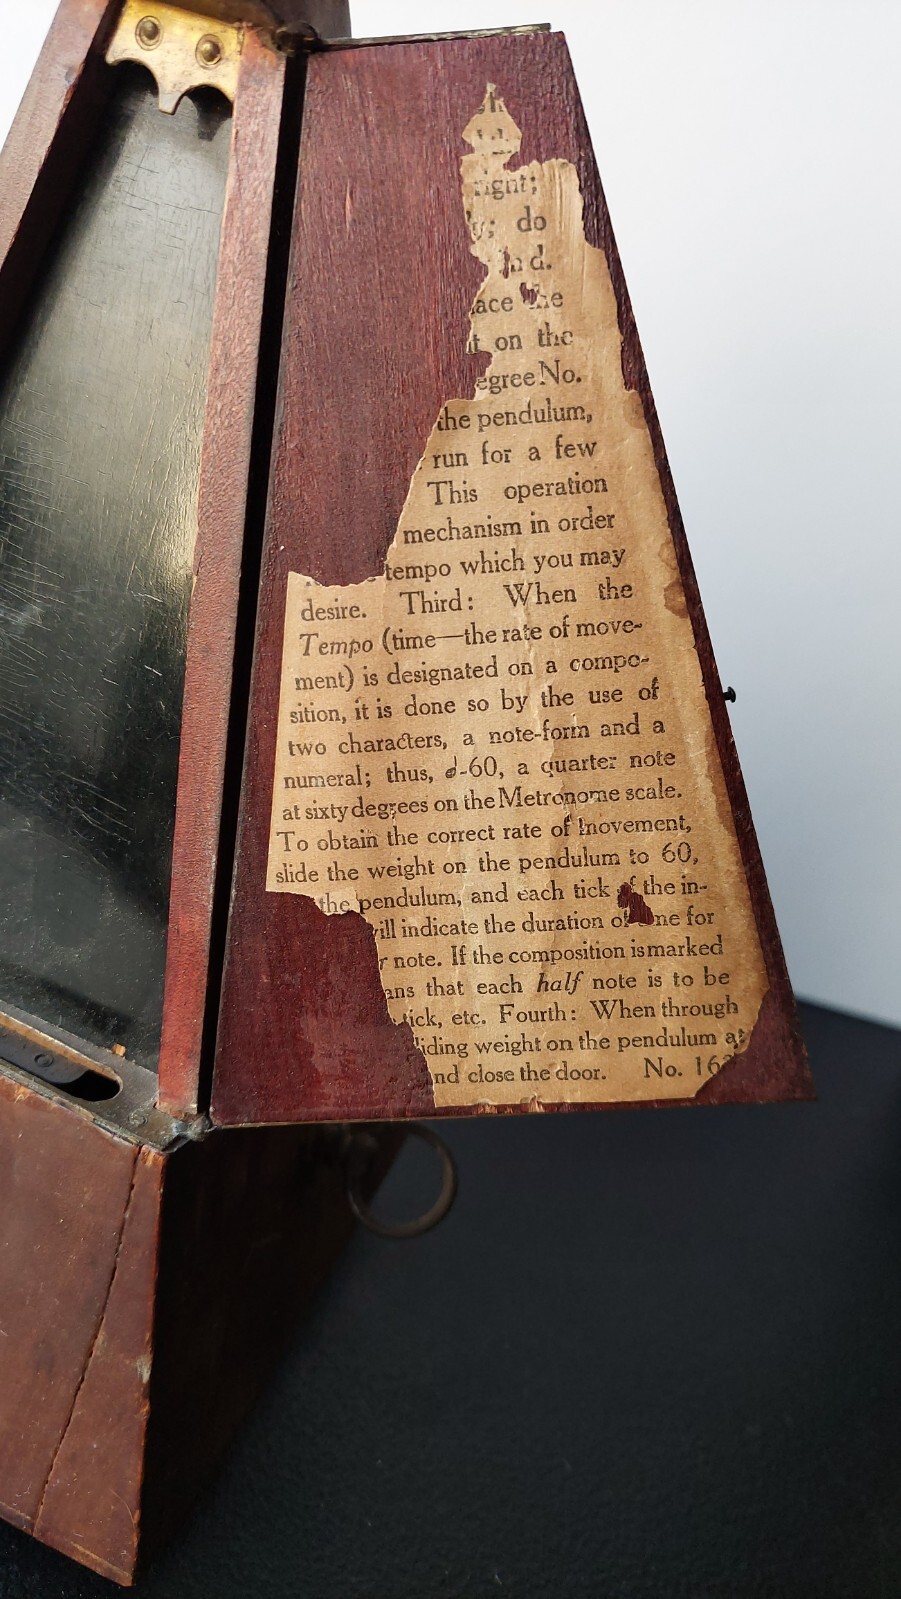 right;
do
the
on the
No.
the pendulum,
run for a few
This operation
mechanism in order
tempo which you may
desire. Third: When the
Tempo (time—the rate of move-
ment) is designated on a compo-
sition, it is done so by the use of
two characters, a note-form and a
numeral; thus, 𝅘𝅥-60, a quarter note
at sixty degrees on the Metronome scale.
To obtain the correct rate of movement,
slide the weight on the pendulum to 60,
the pendulum, and each tick of the in-
will indicate the duration of time for
note. If the composition is marked
that each half note is to be
tick, etc. Fourth: When through
sliding weight on the pendulum at
and close the door. No.